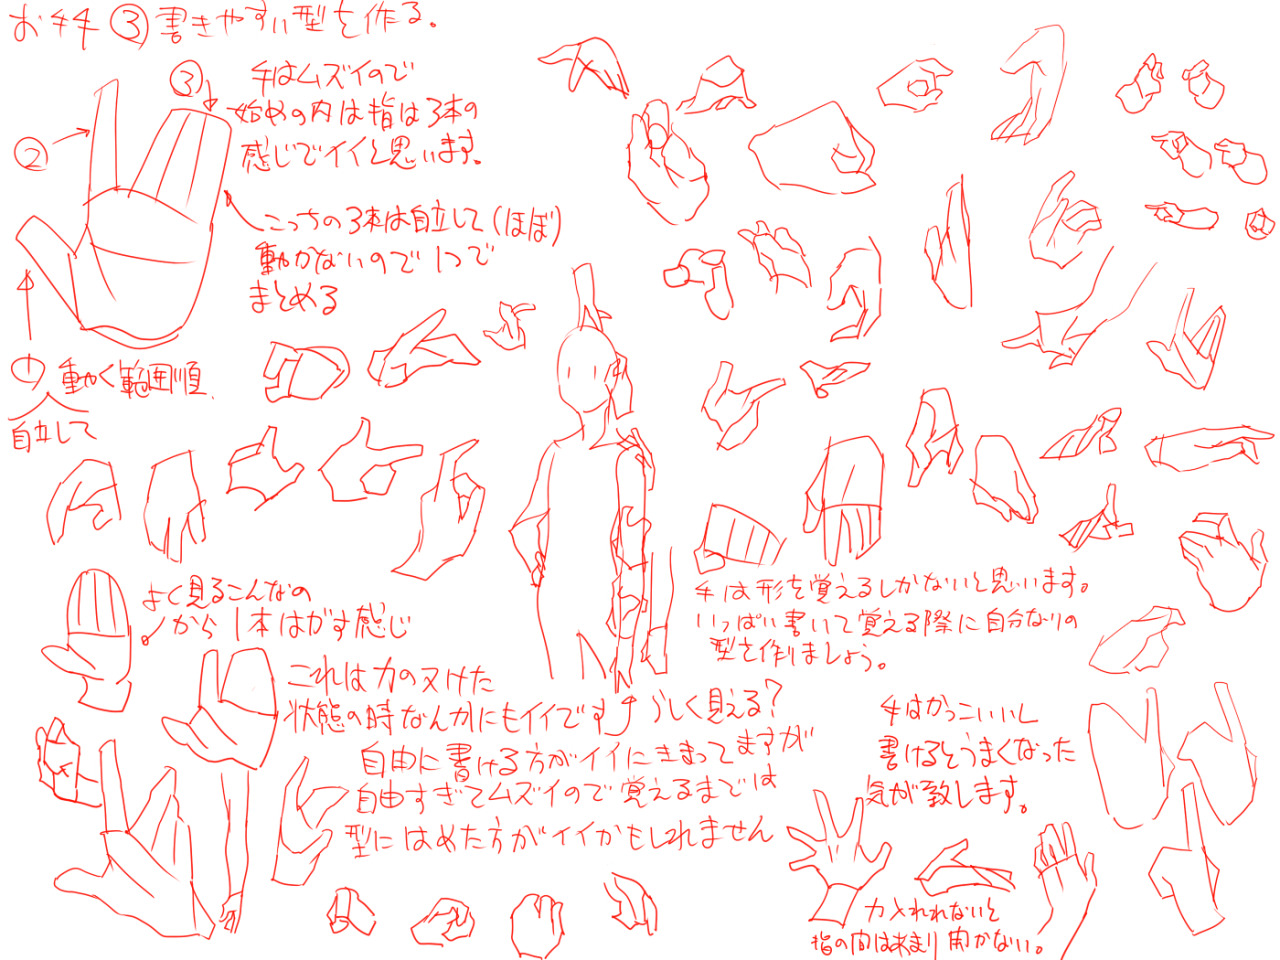 お手手③書きやすい型を作る。
③
手はムズイので
始めの内は指は3本の
感じでイイと思います。
②
こっちの3本は自立して(ほぼ)
動かないので1つで
まとめる
① 動く範囲順
自立して
よく見るこんなの
から1本はがす感じ
これは力のヌけた
状態の時なんかにもイイです
らしく見える?
自由に書ける方がイイにきまってますが
自由すぎてムズイので覚えるまでは
型にはめた方がイイかもしれません
手は形を覚えるしかないと思います。
いっぱい書いて覚える際に自分なりの
型を作りましょう。
手はかっこいいし
書けるとうまくなった
気が致します。
力入れないと
指の間はあまり開かない。